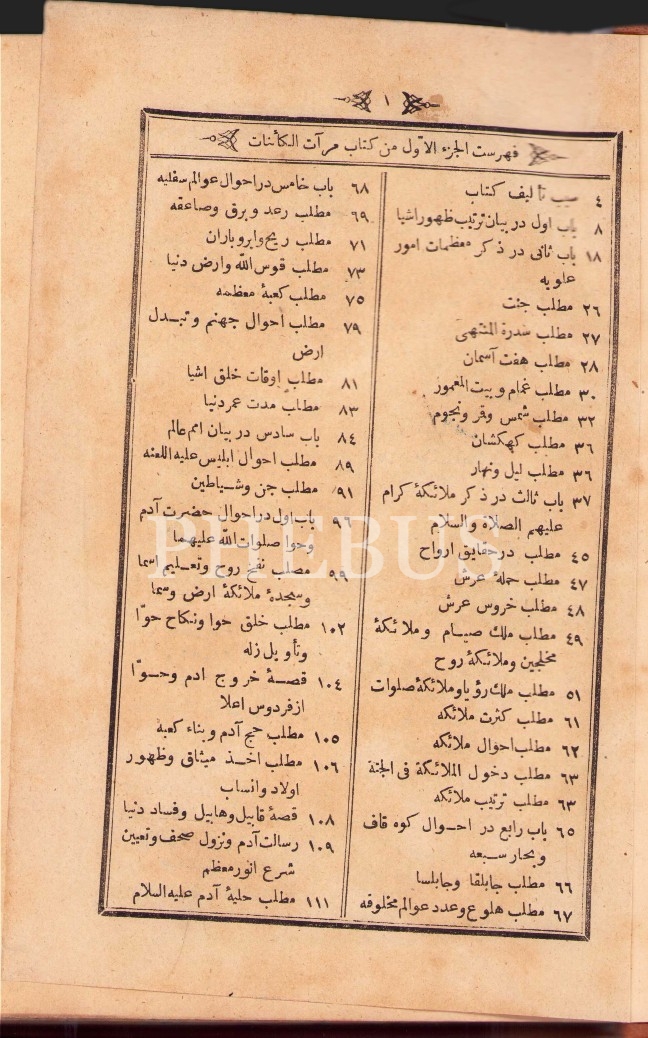 ١
فهرست الجزء الاوّل من كتاب مرآت الكائنات
٤ سبب تأليف كتاب
٨ باب اول در بيان ترتيب ظهور اشيا
١٨ باب ثانى در ذكر معظمات امور
علويه
٢٦ مطلب جنت
٢٧ مطلب سدرة المنتهى
٢٨ مطلب هفت آسمان
٣٠ مطلب غمام و بيت المعمور
٣٢ مطلب شمس وقر ونجوم
٣٦ مطلب كهكشان
٣٦ مطلب ليل ونهار
٣٧ باب ثالث در ذكر ملائكۀ كرام
عليهم الصلاة والسلام
٤٥ مطلب در حقايق ارواح
٤٧ مطلب حملۀ عرش
٤٨ مطلب خروس عرش
٤٩ مطلب ملك صيام وملائكۀ
مخلجين وملائكۀ روح
٥١ مطلب ملك رؤيا وملائكۀ صلوات
٦١ مطلب كثرت ملائكه
٦٢ مطلب احوال ملائكه
٦٣ مطلب دخول الملائكة فى الجنة
٦٣ مطلب ترتيب ملائكه
٦٥ باب رابع در احوال كوه قاف
وبحار سبعه
٦٦ مطلب جابلقا وجابلسا
٦٧ مطلب هلوع وعدد عوالم مخلوقه
٦٨ باب خامس در احوال عوالم سفليه
٦٩ مطلب رعد وبرق وصاعقه
٧١ مطلب ريح وابر وباران
٧٣ مطلب قوس الله وارض دنيا
٧٥ مطلب كعبۀ معظمه
٧٩ مطلب احوال جهنم وتبدل
ارض
٨١ مطلب اوقات خلق اشيا
٨٣ مطلب مدت عمر دنيا
٨٤ باب سادس در بيان امم عالم
٨٩ مطلب احوال ابليس عليه اللعنه
٩١ مطلب جن وشياطين
٩٦ باب اول در احوال حضرت آدم
وحوا صلوات الله عليهما
٩٩ مطلب نفخ روح وتعليم اسما
وسجدۀ ملائكۀ ارض وسما
١٠٢ مطلب خلق حوا ونكاح حوّا
وتأويل زله
١٠٤ قصۀ خروج ادم وحوّا
از فردوس اعلا
١٠٥ مطلب حج آدم وبناء كعبه
١٠٦ مطلب اخذ ميثاق وظهور
اولاد وانساب
١٠٨ قصۀ قابيل وهابيل وفساد دنيا
١٠٩ رسالت آدم ونزول صحف وتعيين
شرع انور معظم
١١١ مطلب حليۀ آدم عليه السلام
PHEBUS